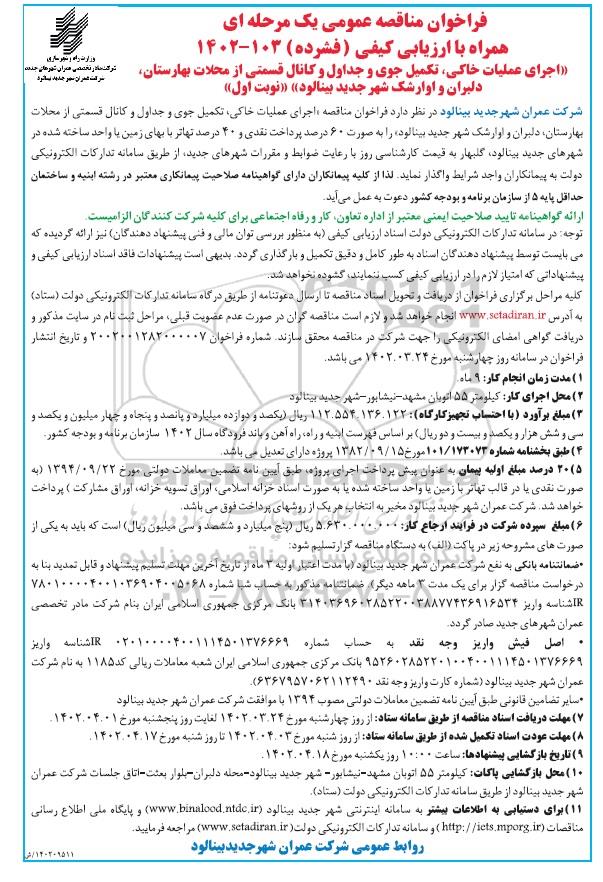 فراخوان مناقصه عمومی یک مرحله ای
همراه با ارزیابی کیفی (فشرده) ۱۰۳-۱۴۰۲
وزارت راه و شهرسازی
شرکت مادر تخصصی عمران شهرهای جدید
شرکت عمران شهر جدید بینالود
«اجرای عملیات خاکی، تکمیل جوی و جداول و کانال قسمتی از محلات بهارستان،
دلبران و اوارشک شهر جدید بینالود» «نوبت اول»
شرکت عمران شهرجدید بینالود در نظر دارد فراخوان مناقصه «اجرای عملیات خاکی، تکمیل جوی و جداول و کانال قسمتی از محلات
بهارستان، دلبران و اوارشک شهر جدید بینالود» را به صورت ۶۰ درصد پرداخت نقدی و ۴۰ درصد تهاتر با بهای زمین یا واحد ساخته شده در
شهرهای جدید بینالود، گلبهار به قیمت کارشناسی روز با رعایت ضوابط و مقررات شهرهای جدید، از طریق سامانه تدارکات الکترونیکی
دولت به پیمانکاران واجد شرایط واگذار نماید. لذا از کلیه پیمانکاران دارای گواهینامه صلاحیت پیمانکاری معتبر در رشته ابنیه و ساختمان
حداقل پایه ۵ از سازمان برنامه و بودجه کشور دعوت به عمل می‌آید.
ارائه گواهینامه تایید صلاحیت ایمنی معتبر از اداره تعاون، کار و رفاه اجتماعی برای کلیه شرکت کنندگان الزامیست.
توجه: در سامانه تدارکات الکترونیکی دولت اسناد ارزیابی کیفی (به منظور بررسی توان مالی و فنی پیشنهاد دهندگان) نیز ارائه گردیده که
می بایست توسط پیشنهاد دهندگان اسناد به طور کامل و دقیق تکمیل و بارگذاری گردد. بدیهی است پیشنهادات فاقد اسناد ارزیابی کیفی و
پیشنهاداتی که امتیاز لازم را در ارزیابی کیفی کسب ننمایند، گشوده نخواهد شد.
کلیه مراحل برگزاری فراخوان از دریافت و تحویل اسناد مناقصه تا ارسال دعوتنامه از طریق درگاه سامانه تدارکات الکترونیکی دولت (ستاد)
به آدرس www.setadiran.ir انجام خواهد شد و لازم است مناقصه گران در صورت عدم عضویت قبلی، مراحل ثبت نام در سایت مذکور و
دریافت گواهی امضای الکترونیکی را جهت شرکت در مناقصه محقق سازند. شماره فراخوان ۲۰۰۲۰۰۱۲۸۲۰۰۰۰۰۷ و تاریخ انتشار
فراخوان در سامانه روز چهارشنبه مورخ ۱۴۰۲.۰۳.۲۴ می باشد.
۱) مدت زمان انجام کار: ۹ ماه.
۲) محل اجرای کار: کیلومتر ۵۵ اتوبان مشهد-نیشابور-شهر جدید بینالود
۳) مبلغ برآورد (با احتساب تجهیزکارگاه): ۱۱۲.۵۵۴.۱۳۶.۱۲۲ ریال (یکصد و دوازده میلیارد و پانصد و پنجاه و چهار میلیون و یکصد و
سی و شش هزار و یکصد و بیست و دو ریال) بر اساس فهرست ابنیه و راه، راه آهن و باند فرودگاه سال ۱۴۰۲ سازمان برنامه و بودجه کشور.
۴) طبق بخشنامه شماره ۱۰۱/۱۷۳۰۷۳ مورخ ۱۳۸۲/۰۹/۱۵ پروژه دارای تعدیل می باشد.
۵) ۲۰ درصد مبلغ اولیه پیمان به عنوان پیش پرداخت اجرای پروژه، طبق آیین نامه تضمین معاملات دولتی مورخ ۱۳۹۴/۰۹/۲۲ (به
صورت نقدی یا در قالب تهاتر با زمین یا واحد ساخته شده یا به صورت اسناد خزانه اسلامی، اوراق تسویه خزانه، اوراق مشارکت) پرداخت
خواهد شد. شرکت عمران شهر جدید بینالود مخیر به انتخاب هر یک از روشهای پرداخت فوق می باشد.
۶) مبلغ سپرده شرکت در فرایند ارجاع کار: ۵.۶۳۰.۰۰۰.۰۰۰ ریال (پنج میلیارد و ششصد و سی میلیون ریال) است که باید به یکی از
صورت های مشروحه زیر در پاکت (الف) به دستگاه مناقصه گزار تسلیم شود:
•ضمانتنامه بانکی به نفع شرکت عمران شهر جدید بینالود (با مدت اعتبار اولیه ۳ ماه از تاریخ آخرین مهلت تسلیم پیشنهاد و قابل تمدید بنا به
درخواست مناقصه گزار برای یک مدت ۳ ماهه دیگر). ضمانتنامه مذکور به حساب شبا شماره
عمران شهرهای جدید صادر گردد.
• اصل فیش واریز وجه نقد به حساب شماره
بانک مرکزی جمهوری اسلامی ایران شعبه معاملات ریالی کد ۱۱۸۵ به نام شرکت
عمران شهر جدید بینالود (شماره کارت واریز وجه نقد ۶۳۶۷۹۵۷۰۶۲۱۱۲۴۹۰).
•سایر تضامین قانونی طبق آیین نامه تضمین معاملات دولتی مصوب ۱۳۹۴ با موافقت شرکت عمران شهر جدید بینالود
۷) مهلت دریافت اسناد مناقصه از طریق سامانه ستاد: از روز چهارشنبه مورخ ۱۴۰۲.۰۳.۲۴ لغایت روز پنجشنبه مورخ ۱۴۰۲.۰۴.۰۱.
۸) مهلت عودت اسناد تکمیل شده از طریق سامانه ستاد: از روز شنبه مورخ ۱۴۰۲.۰۴.۰۳ تا روز شنبه مورخ ۱۴۰۲.۰۴.۱۷.
۹) تاریخ بازگشایی پیشنهادها: ساعت ۱۰:۰۰ روز یکشنبه مورخ ۱۴۰۲.۰۴.۱۸.
۱۰) محل بازگشایی پاکات: کیلومتر ۵۵ اتوبان مشهد-نیشابور- شهر جدید بینالود-محله دلبران-بلوار بعثت-اتاق جلسات شرکت عمران
شهر جدید بینالود از طریق سامانه تدارکات الکترونیکی دولت (ستاد).
۱۱) برای دستیابی به اطلاعات بیشتر به سامانه اینترنتی شهر جدید بینالود (www.binalood.ntdc.ir) و پایگاه ملی اطلاع رسانی
مناقصات (http://iets.mporg.ir) و سامانه تدارکات الکترونیکی دولت (www.setadiran.ir) مراجعه فرمایید.
روابط عمومی شرکت عمران شهرجدیدبینالود
۱۴۰۲۰۹۵۱۱/ش